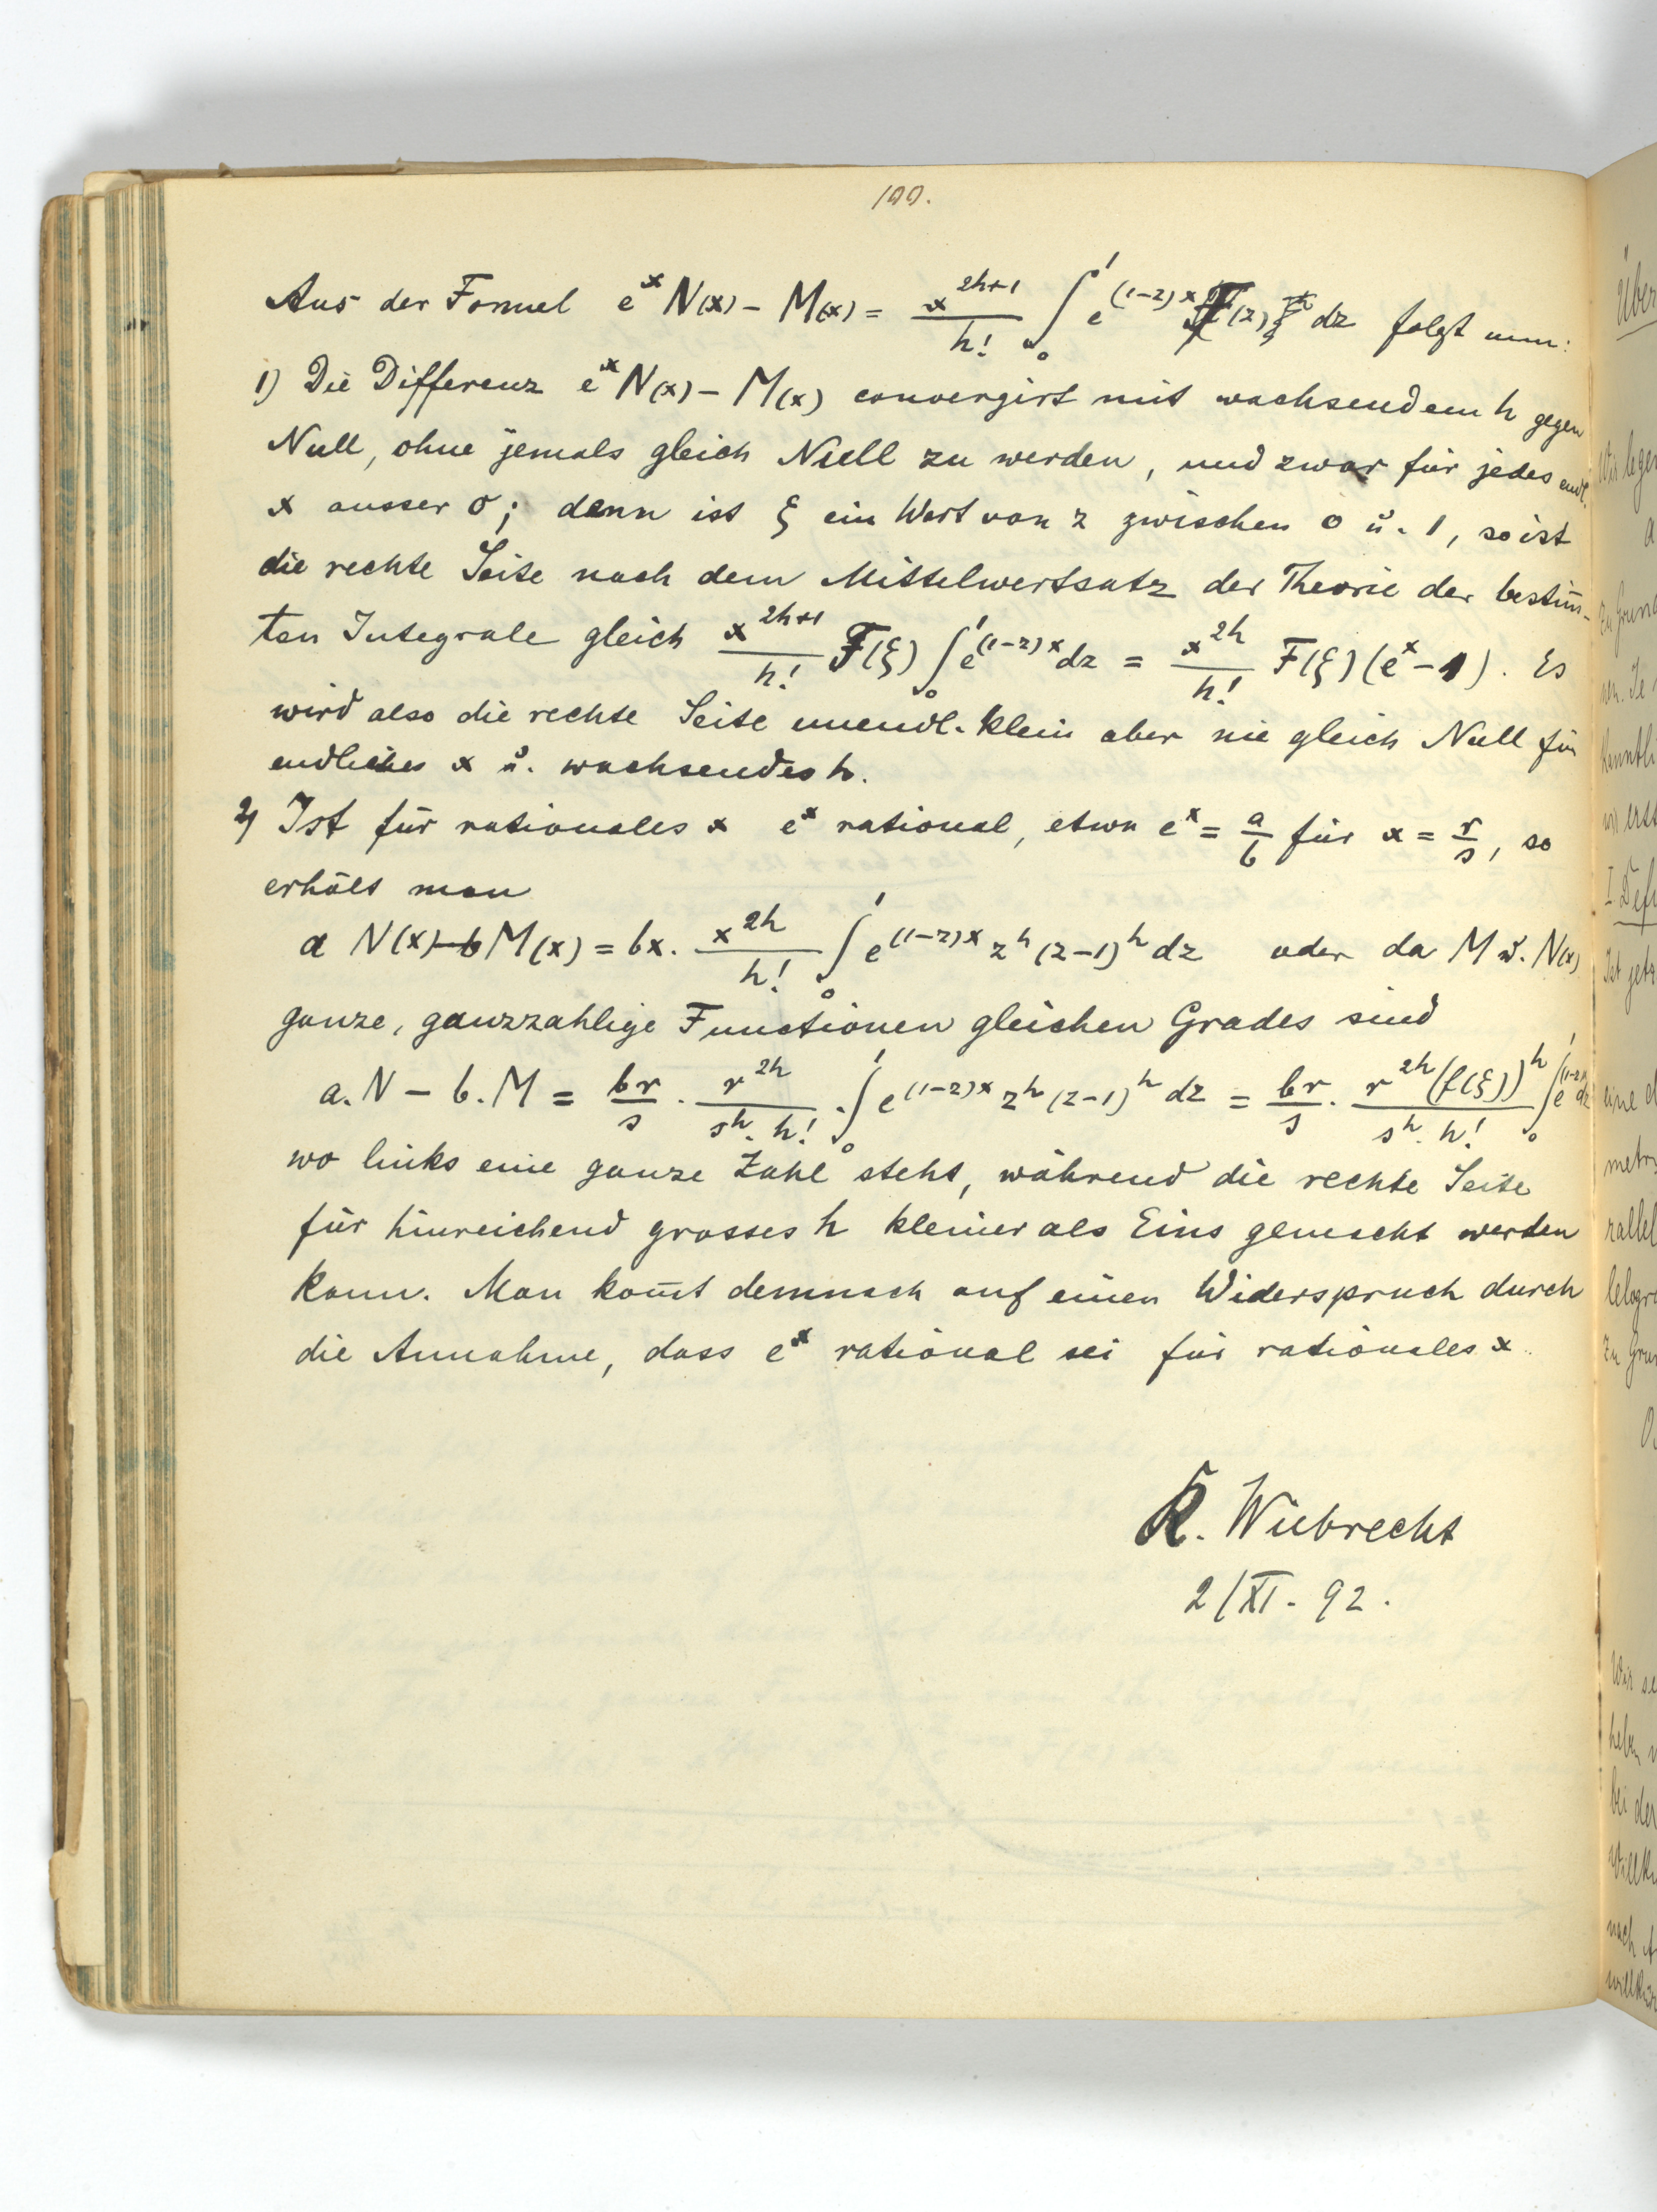 199.
Aus der Formel e^x N(x) – M(x) = x^{2h+1}/h! ∫_0^1 e^{(1-z)x} F(z) dz folgt nun:
1) Die Differenz e^x N(x) – M(x) convergirt mit wachsendem h gegen
Null, ohne jemals gleich Null zu werden, und zwar für jedes endl.
x ausser 0; denn ist ξ ein Wert von z zwischen 0 u. 1, so ist
die rechte Seite nach dem Mittelwertsatz der Theorie der bestim̄-
ten Integrale gleich x^{2h+1}/h! F(ξ) ∫_0^1 e^{(1-z)x} dz = x^{2h}/h! F(ξ) (e^x – 1). Es
wird also die rechte Seite unendl. klein aber nie gleich Null für
endliches x u. wachsendes h.
2) Ist für rationales x e^x rational, etwa e^x = a/b für x = r/s, so
erhält man
a N(x) – b M(x) = bx. x^{2h}/h! ∫_0^1 e^{(1-z)x} z^h (z-1)^h dz oder da M u. N(x)
ganze, ganzzahlige Functionen gleichen Grades sind
a. N – b. M = br/s . r^{2h}/s^h. h! . ∫_0^1 e^{(1-z)x} z^h (z-1)^h dz = br/s . r^{2h} (f(ξ))^h/s^h. h! ∫_0^1 e^{(1-z)x} dz
wo links eine ganze Zahl steht, während die rechte Seite
für hinreichend grosses h kleiner als Eins gemacht werden
kann. Man kom̄t demnach auf einen Widerspruch durch
die Annahme, dass e^x rational sei für rationales x.
K. Wiebrecht
2/XI. 92.